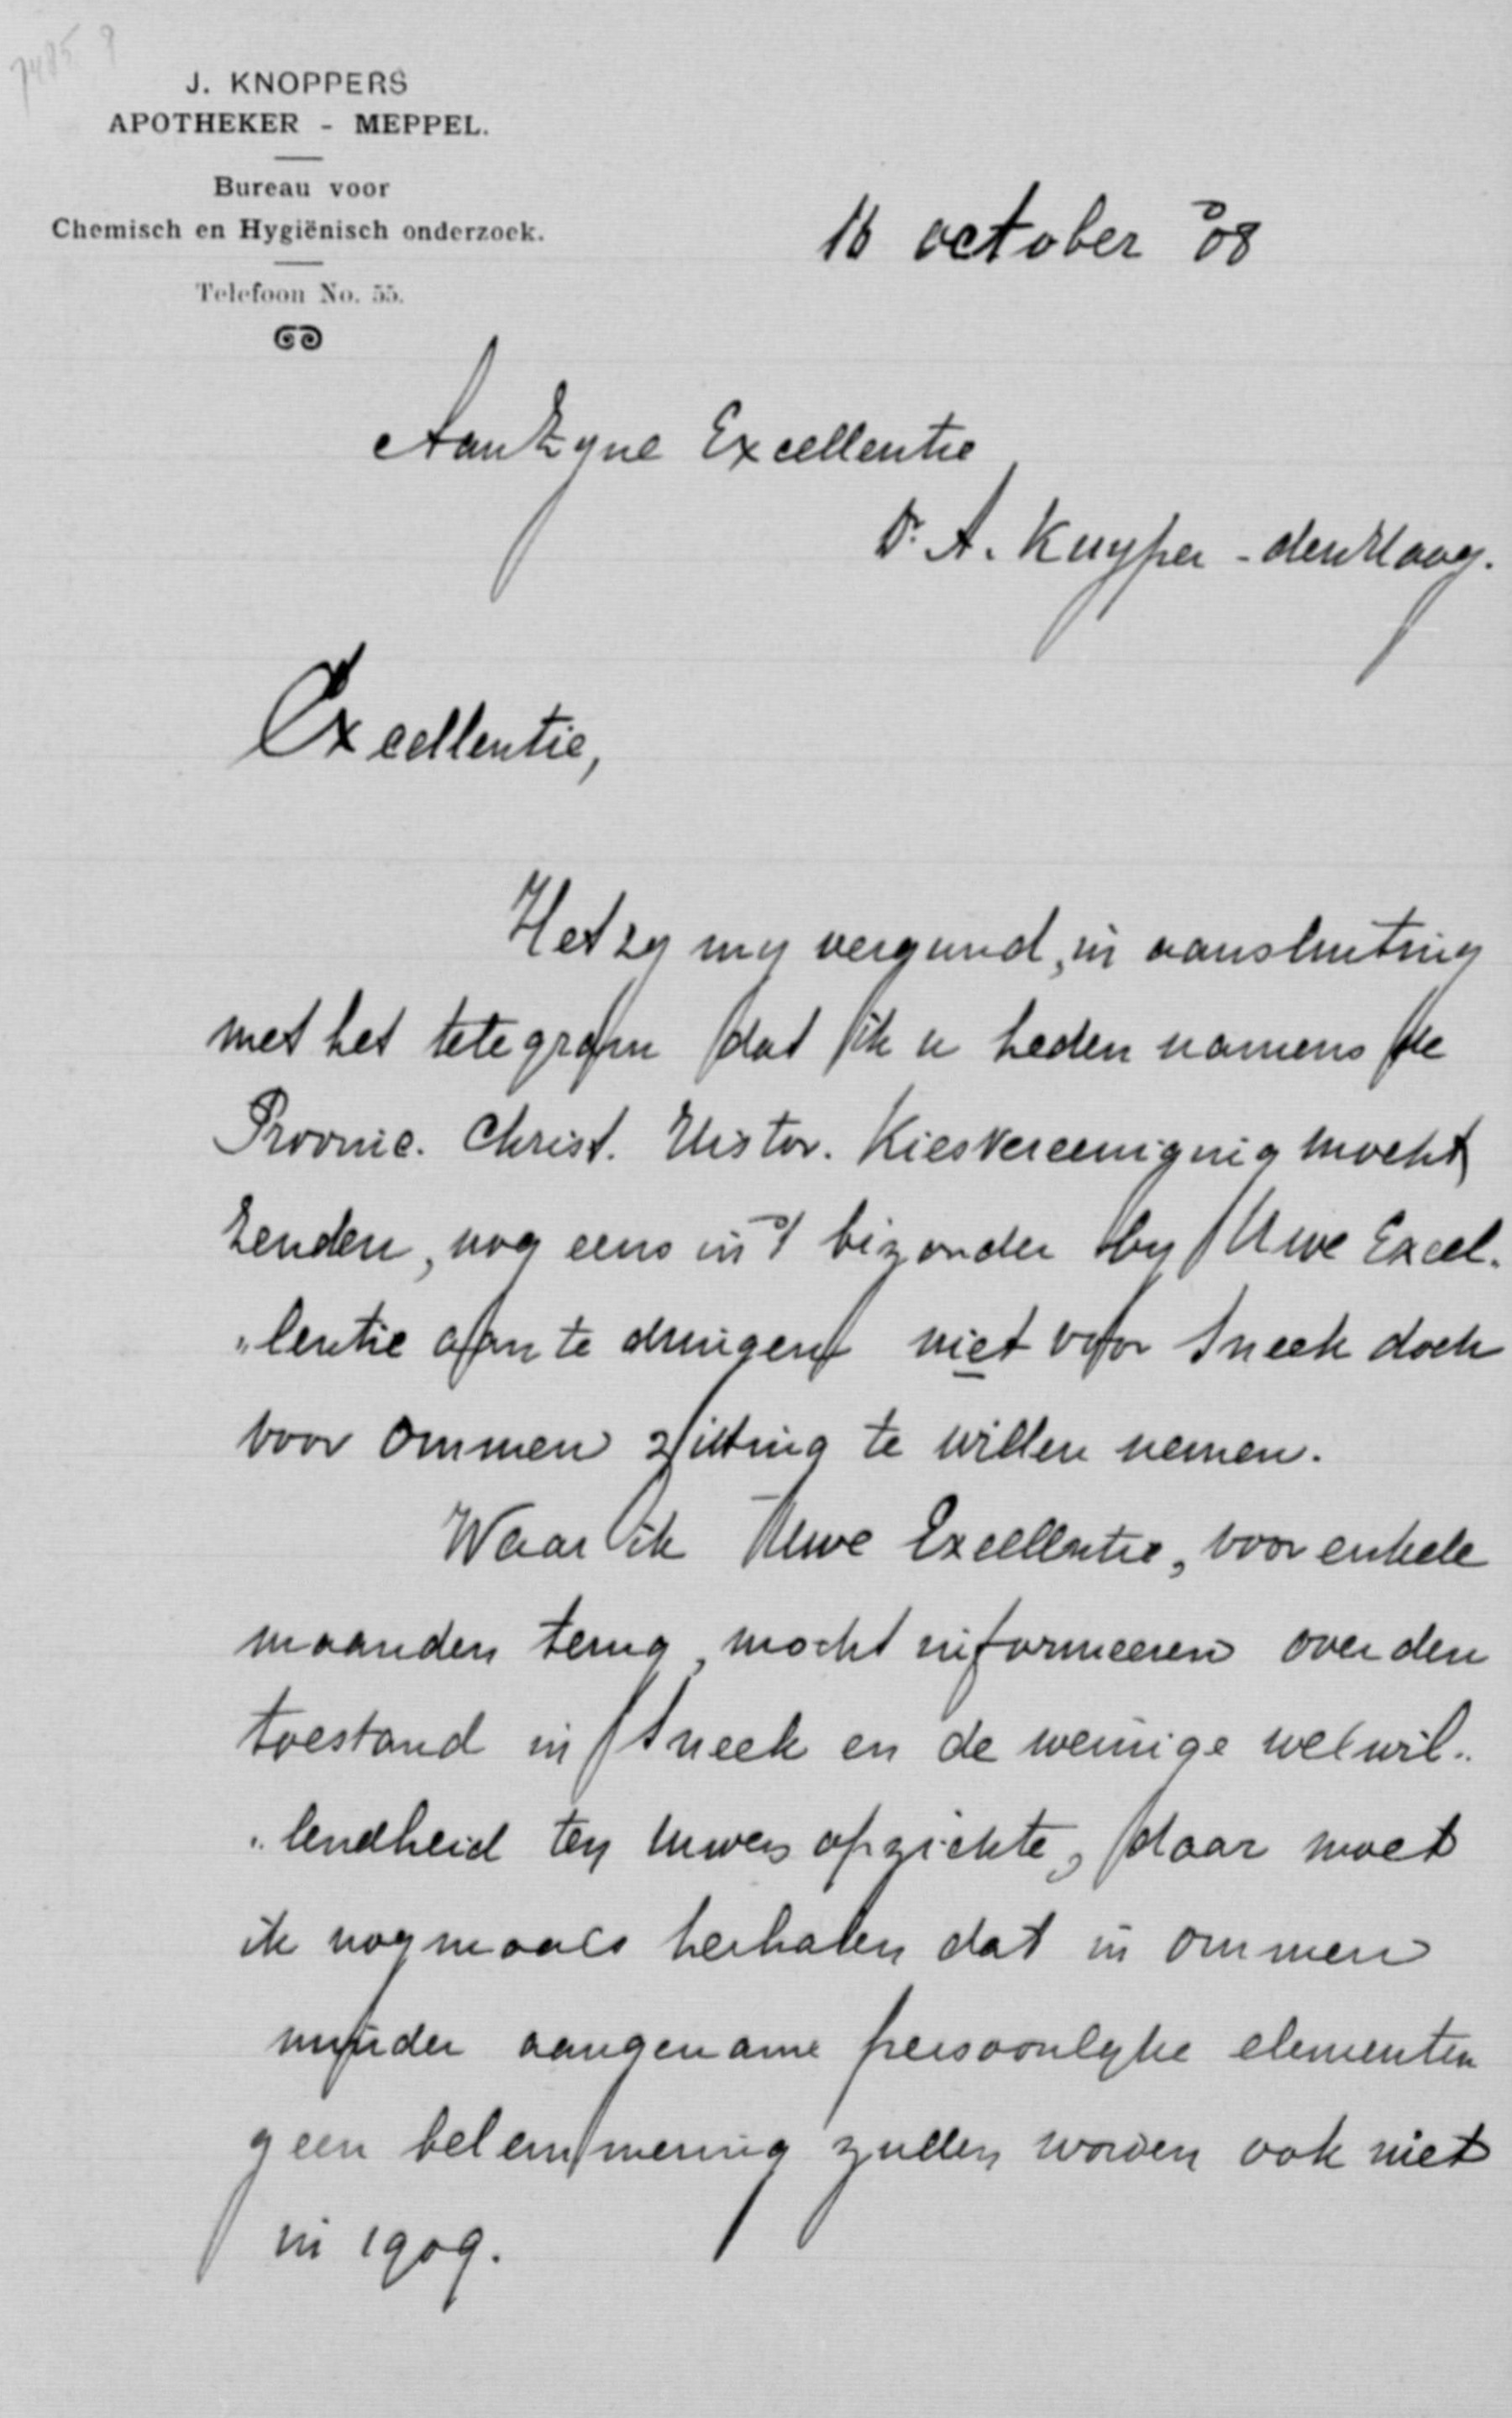 J. KNOPPERS
APOTHEKER - MEPPEL.
Bureau voor
Chemisch en Hygiënisch onderzoek.
Telefoon No. 55.
16 october '08
Aan Zyne Excellentie
Dr. A. Kuyper - den Haag.
Excellentie,
Het zy my vergund, in aansluiting
met het telegram dat ik u heden namens de
Provinc. Christ. Histor. Kiesvereeniging mocht
zenden, nog eens in 't bizonder by Uwe Excel-
"lentie aan te dringen niet voor Sneek doch
voor Ommen zitting te willen nemen.
Waar ik Uwe Excellentie, voor enkele
maanden terug, mocht informeeren over den
toestand in Sneek en de weinige welwil-
"lendheid ten Uwen opzichte, daar moet
ik nogmaals herhalen dat in Ommen
minder aangename persoonlyke elementen
geen belemmering zullen worden ook niet
in 1909.